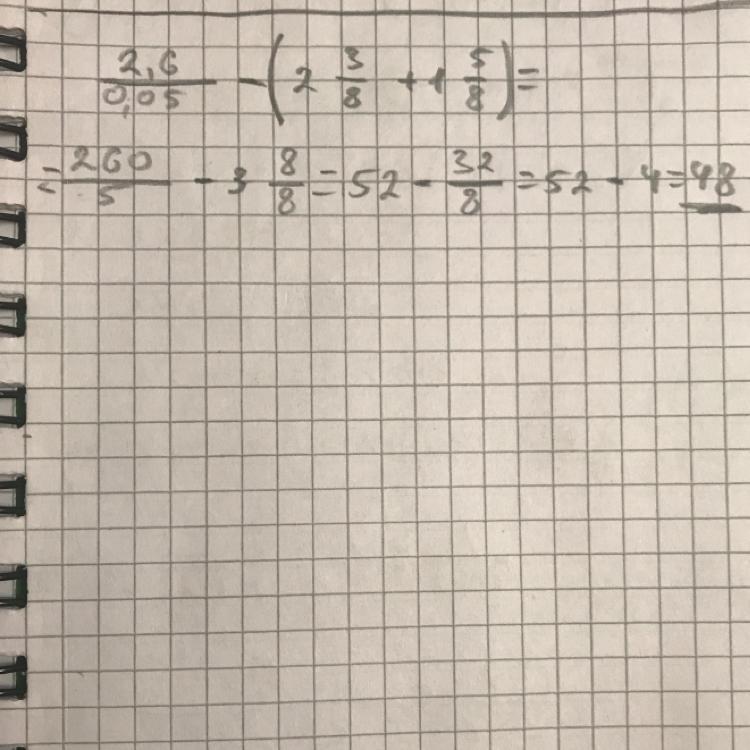 2,6/0,05 - (2 3/8 + 1 5/8) =
= 260/5 - 3 8/8 = 52 - 32/8 = 52 - 4 = 48